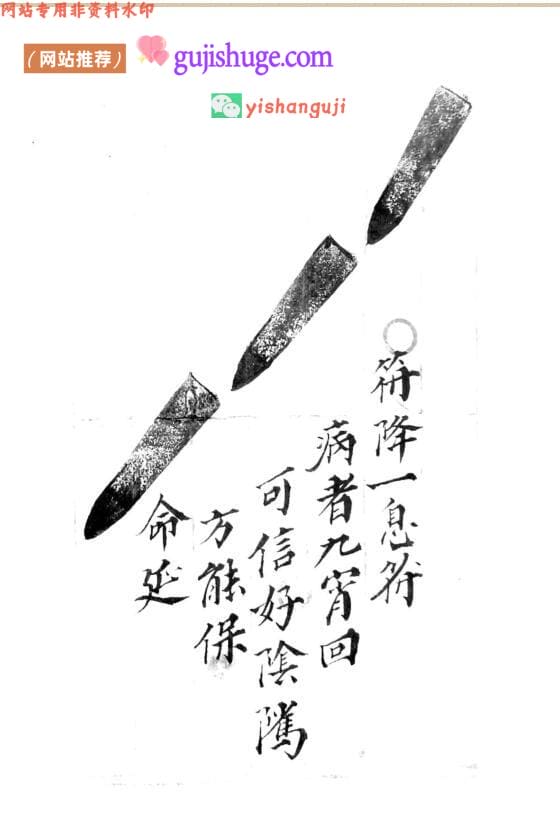 网站专用非资料水印
（网站推荐）
gujishuge.com
yishanguji
符降一息符
病者九宵回
可信好陰騭
方能保
命延